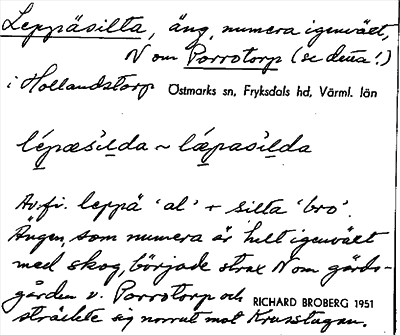 Leppäsilta, äng, numera igenväxt,
N om Porrotorp (se detta!)
i Hollandstorp Östmarks sn, Fryksdals hd, Värml. län
lépæsìlda ~ lǽpasìlda
Av fi. leppä 'al' + silta 'bro'.
Ängen, som numera är helt igenväxt
med skog, började strax N om gårds-
gården v. Porrotorp och RICHARD BROBERG 1951
sträckte sig norrut mot Krusstugan.